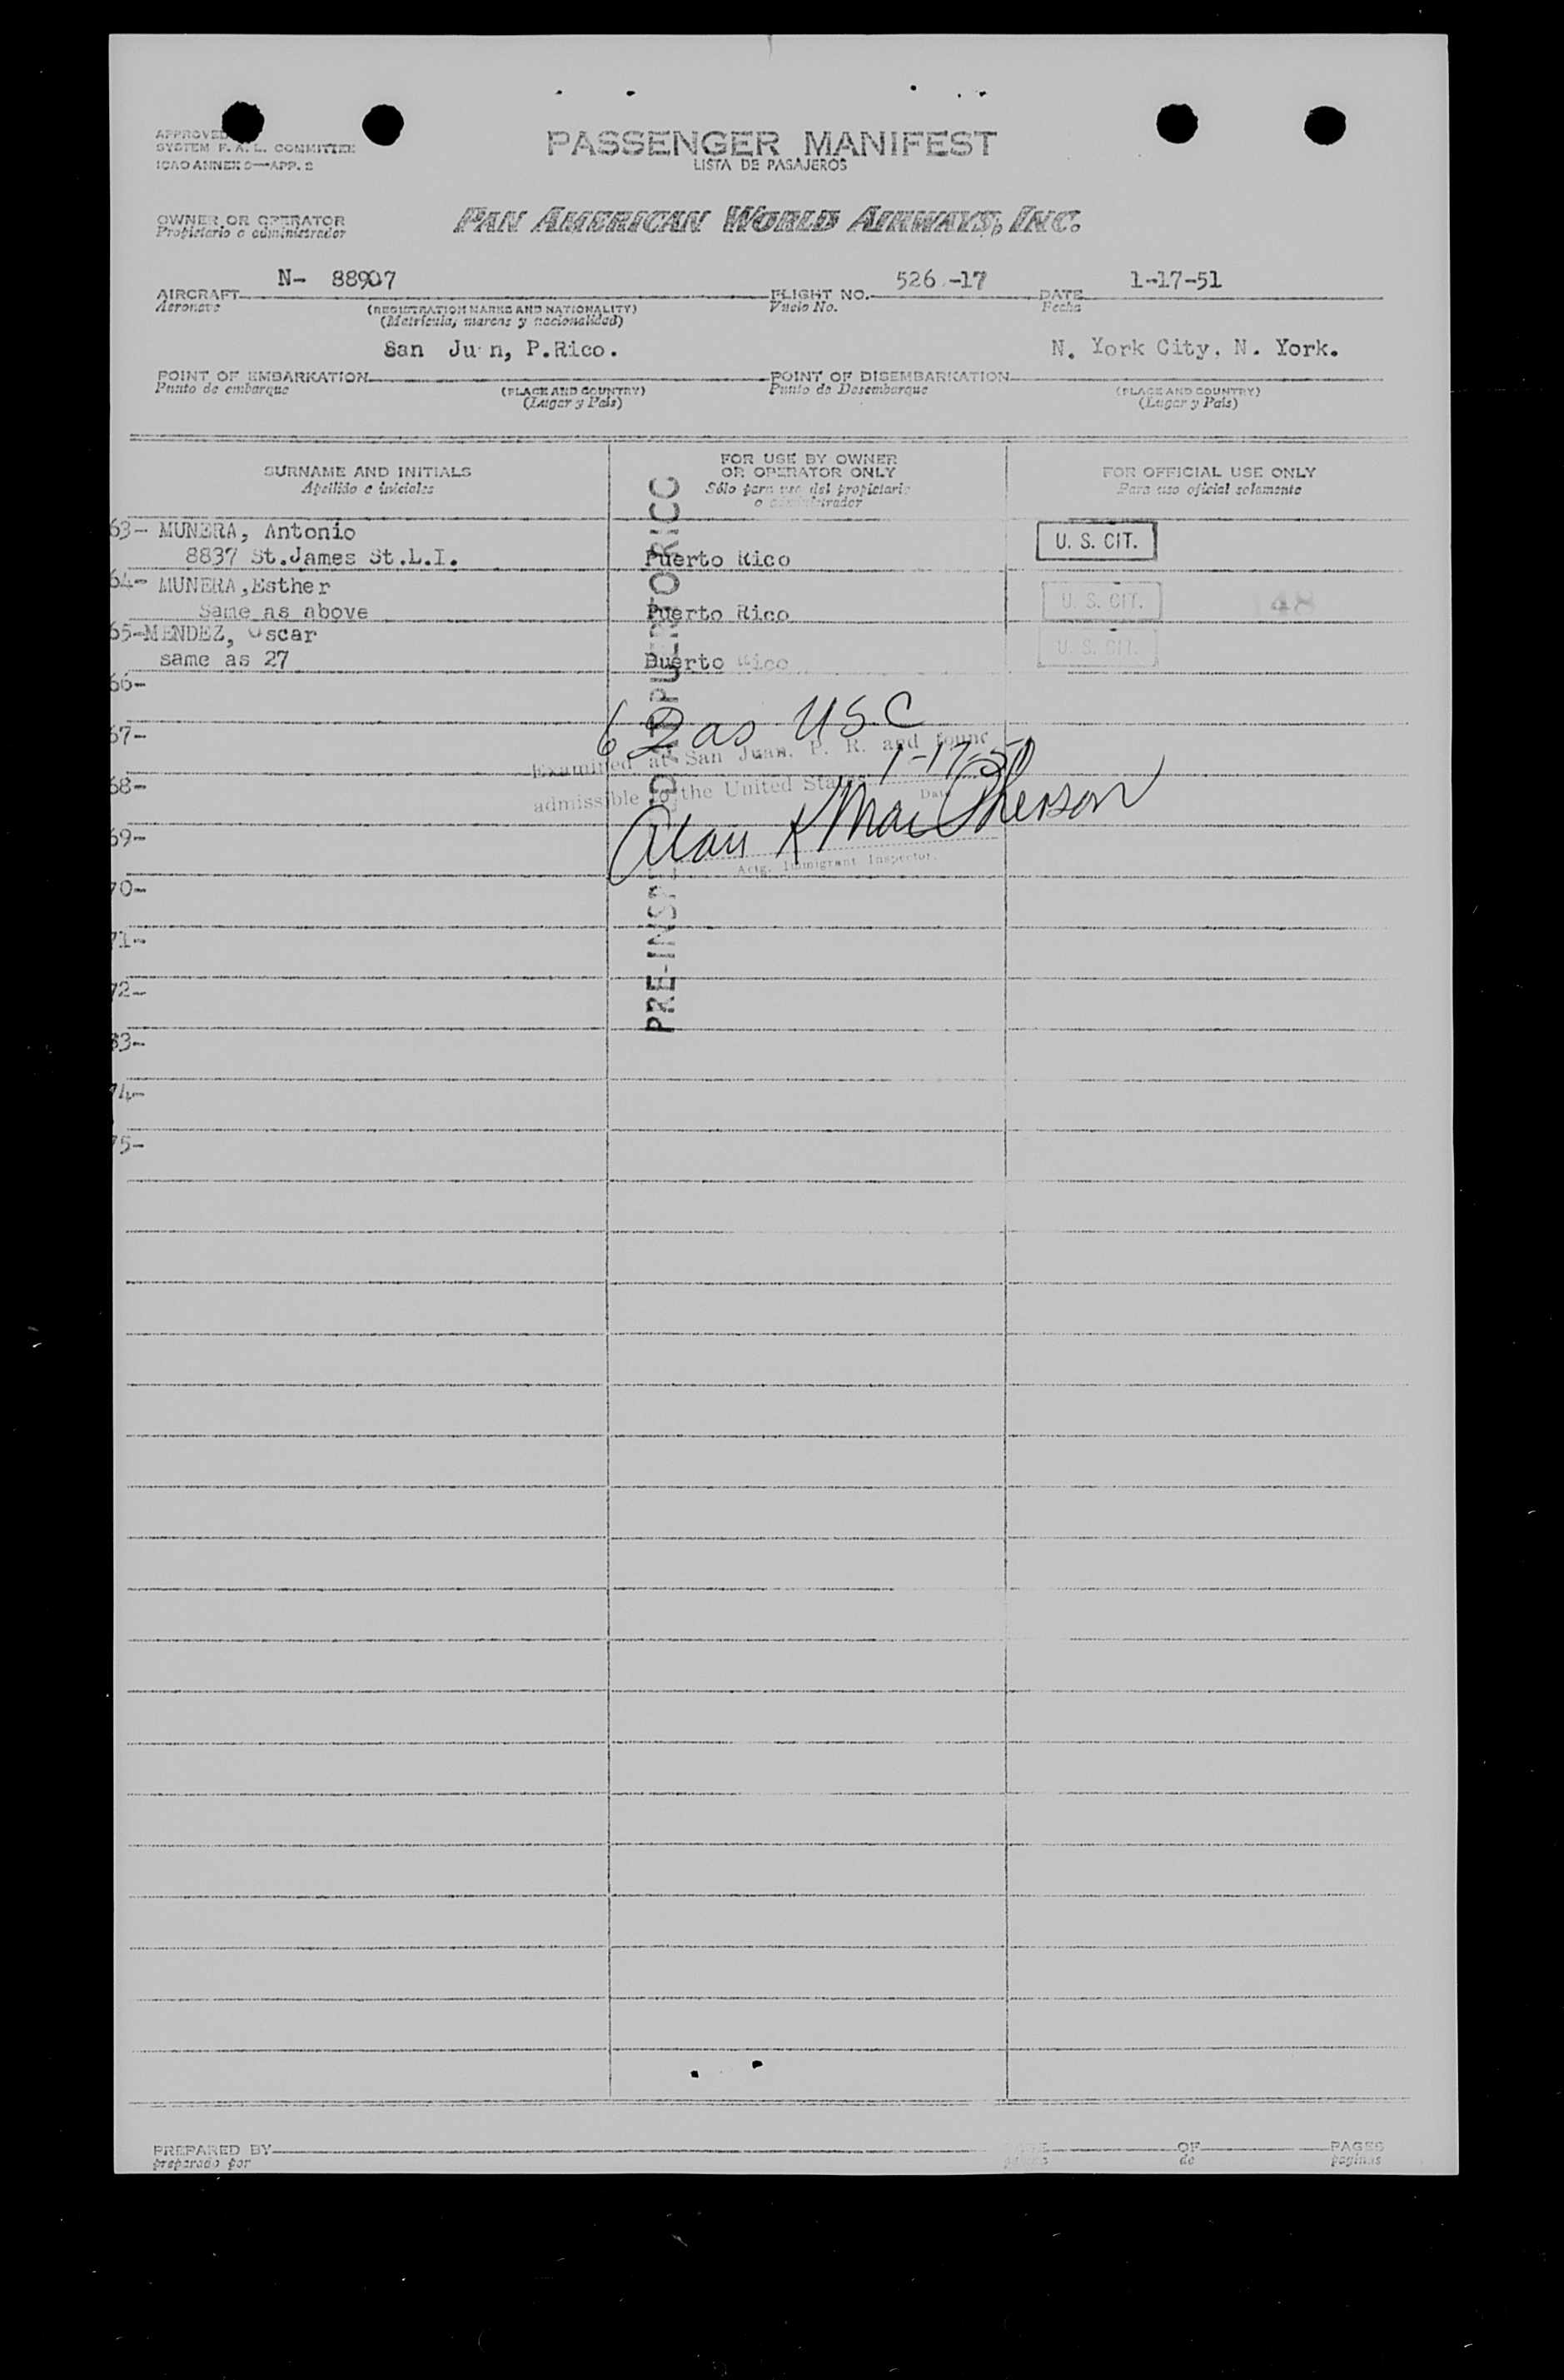 APPROVED
PASSENGER MANIFEST
SYSTEM F. A. L. COMMITTEE
LISTA DE PASAJEROS
ICAO ANNEX 9—APP. 2
OWNER OR OPERATOR
Propietario o administrador
PAN AMERICAN WORLD AIRWAYS, INC.
AIRCRAFT N- 88907 FLIGHT NO. 526 -17 DATE 1-17-51
Aeronave (REGISTRATION MARKS AND NATIONALITY) Vuelo No. Fecha
(Matrícula, marcas y nacionalidad)
San Ju n, P.Rico. N. York City, N. York.
POINT OF EMBARKATION POINT OF DISEMBARKATION
Punto de embarque (PLACE AND COUNTRY) Punto de Desembarque (PLACE AND COUNTRY)
(Lugar y País) (Lugar y País)
SURNAME AND INITIALS
Apellido e iniciales
FOR USE BY OWNER
OR OPERATOR ONLY
Sólo para uso del propietario
o administrador
FOR OFFICIAL USE ONLY
Para uso oficial solamente
63- MUNERA, Antonio
8837 St.James St.L.I. Puerto Rico U. S. CIT.
64- MUNERA,Esther
Same as above Puerto Rico U. S. CIT. 48
65-MENDEZ, Oscar
same as 27 Puerto Rico U. S. CIT.
66-
67-
68-
69-
70-
71-
72-
83-
74-
75-
62 as USC
Examined at San Juan, P. R. and found
1-17-51
admissible to the United States
Date
Alan K MacPherson
Actg. Immigrant Inspector.
PRE-INSPECTED AT PUERTO RICO
PREPARED BY OF PAGES
preparado por de páginas